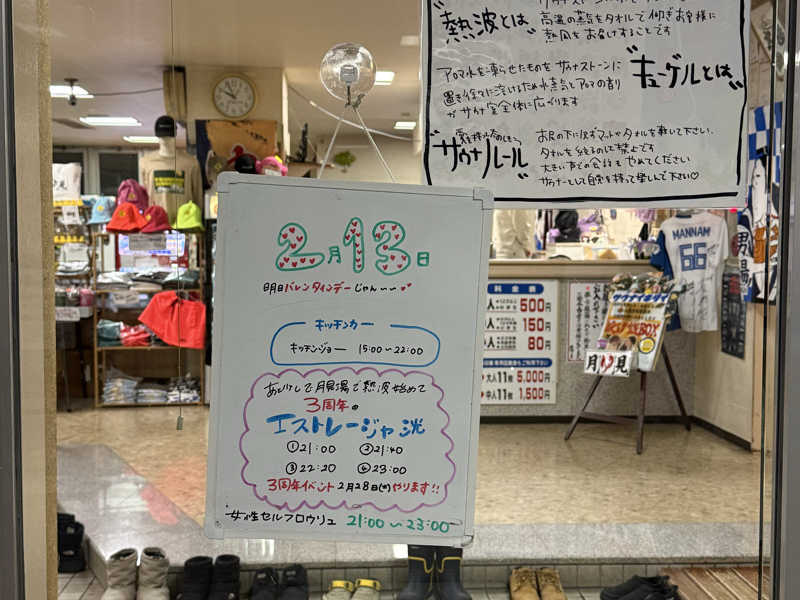 "熱波とは"
高温の蒸気をタオルで仰ぎお客様に
熱風をお届けすることです
アロマ水を凍らせたものをサウナストーンに
置き徐々に溶けるため水蒸気とアロマの香り
がサウナ室全体に広がります
"キューゲルとは"
"サウナルール"
お尻の下に必ずマットやタオルを敷いて下さい。
タオルを絞るのは禁止です
大きい声での会話もやめてください
サウナーとして自覚を持って楽しんで下さい♡
2月13日
明日バレンタインデーじゃん〜〜
キッチンカー
キッチンジョー 15:00〜22:00
あしけしで月見湯で熱波始めて
3周年の
エストレージャ洸
①21:00 ②21:40
③22:20 ④23:00
3周年イベント 2月28日(水)やります!!
女性セルフロウリュ 21:00〜23:00
料金表
500円
150円
80円
大人11枚 5,000円
中人11枚 1,500円
サウナイキタイ
月見
MANNAM
66